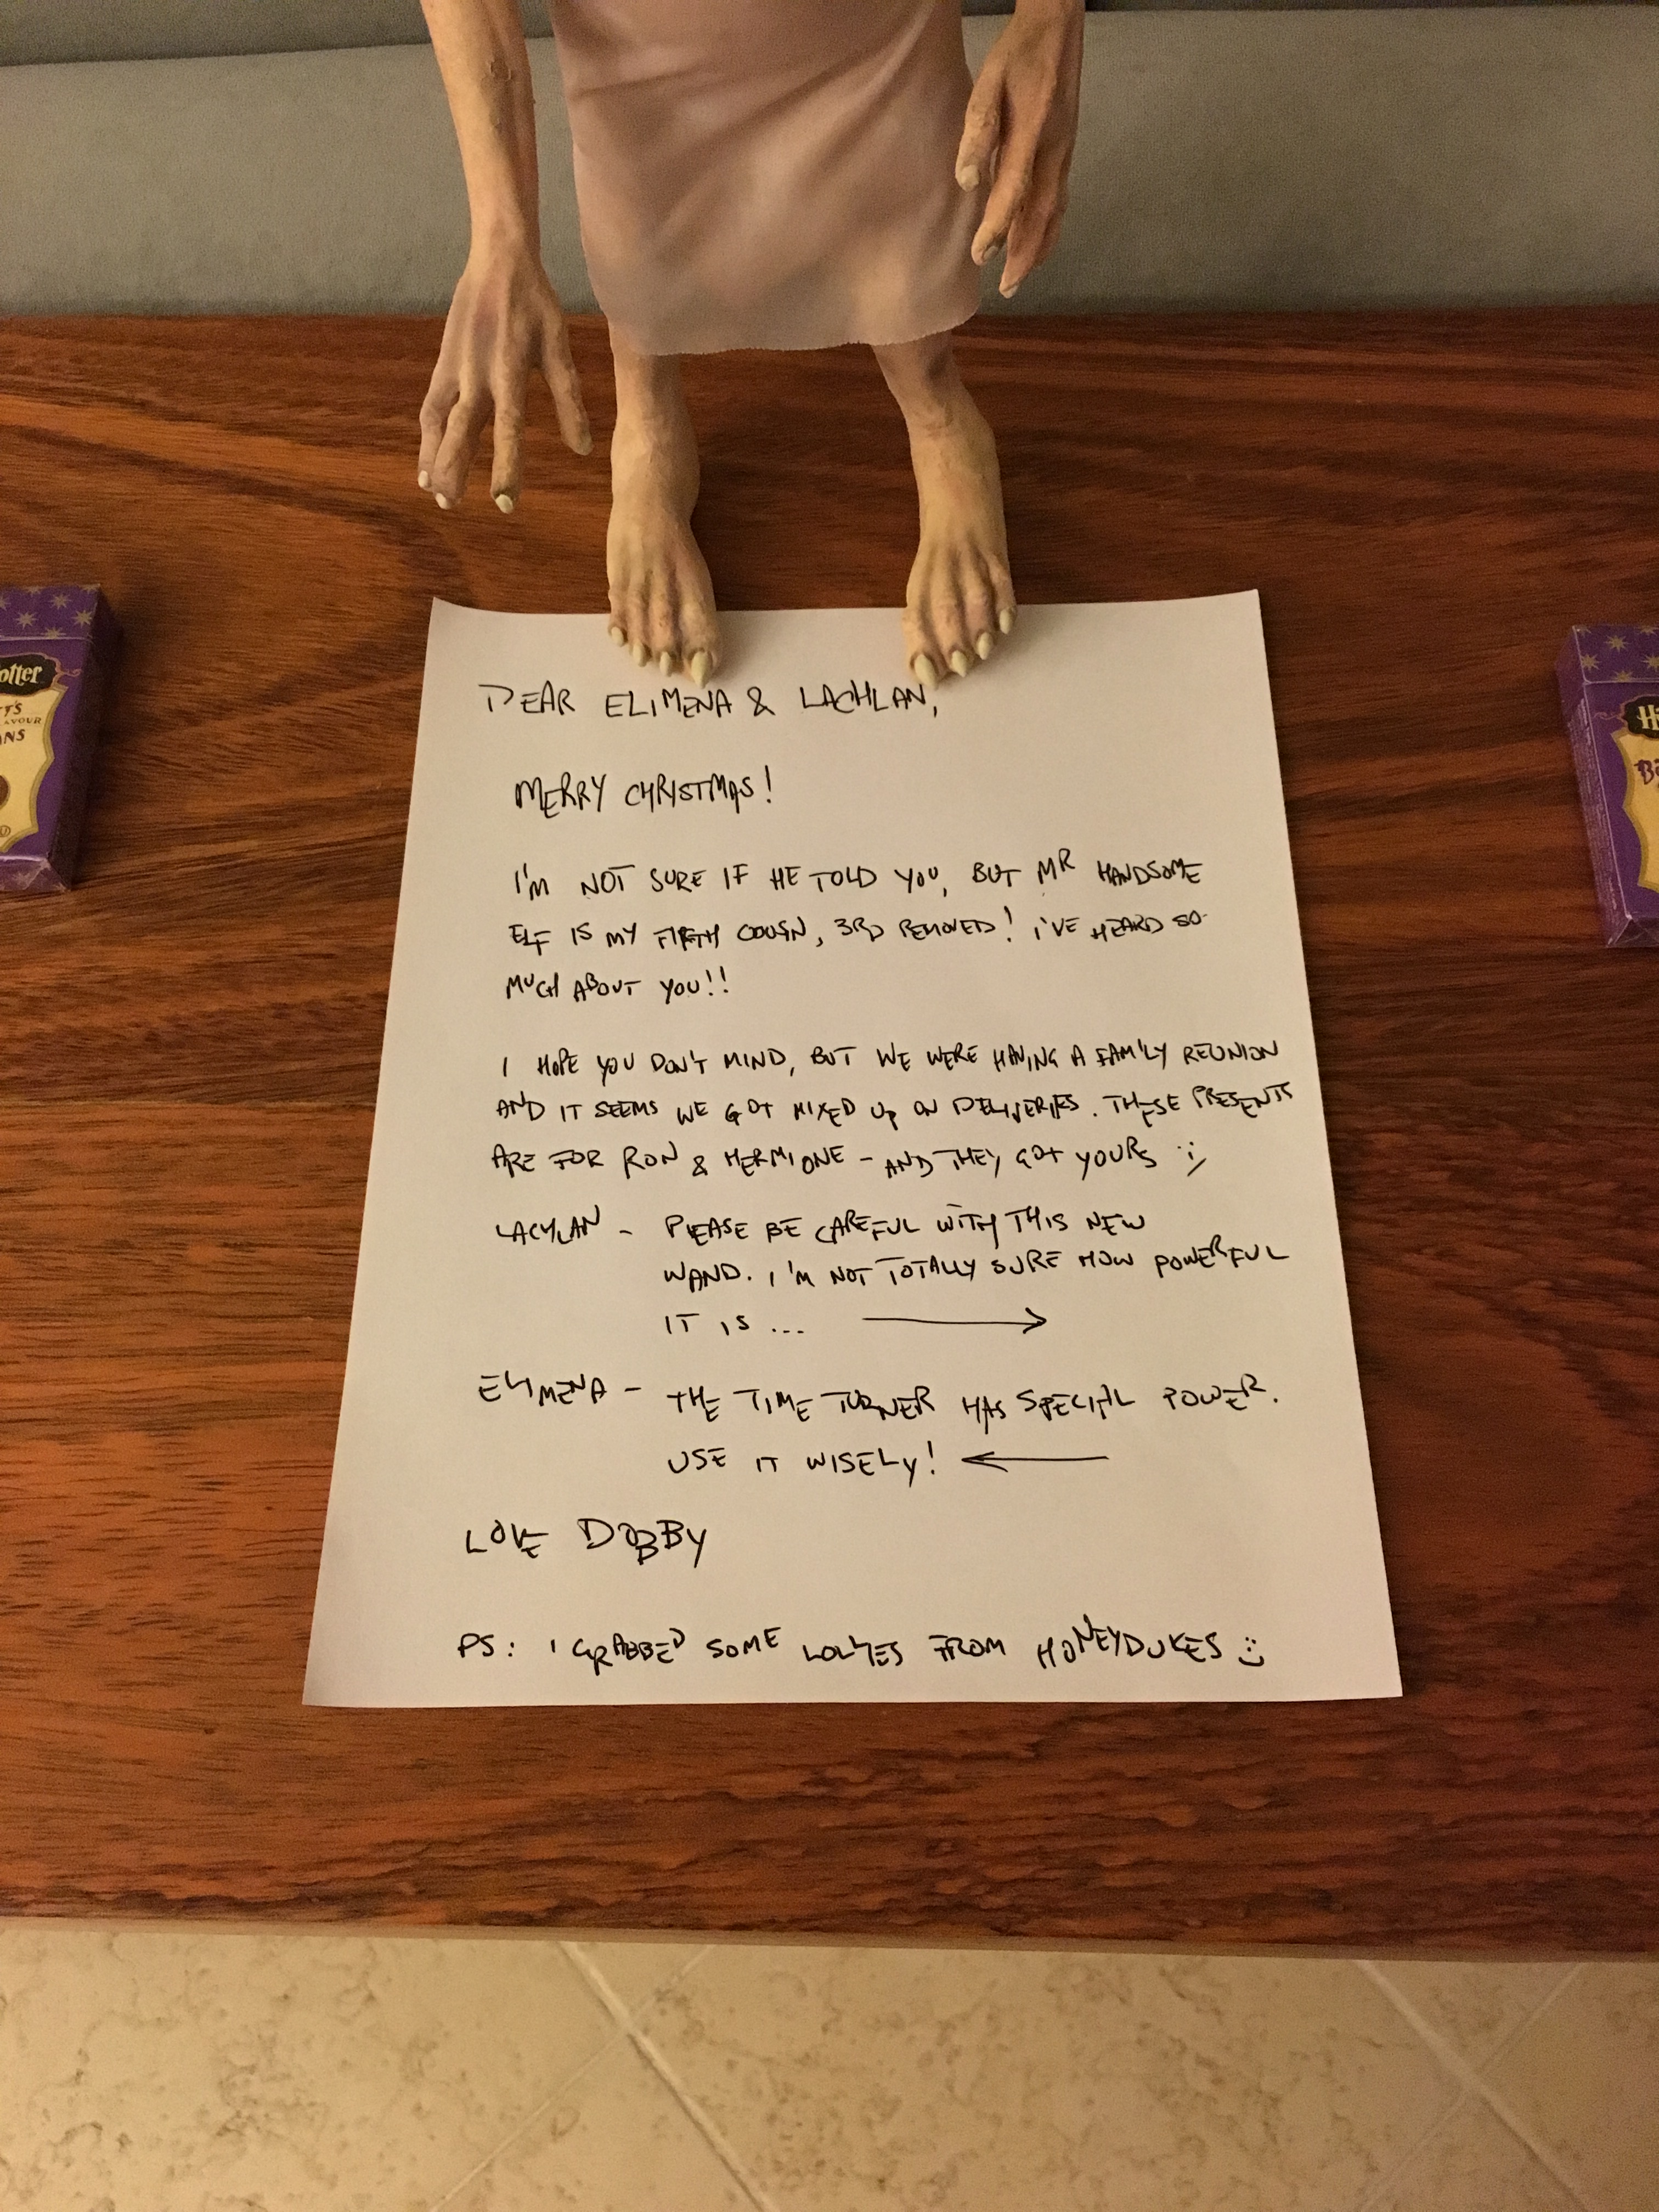 DEAR ELIMENA & LACHLAN,
MERRY CHRISTMAS!
I'M NOT SURE IF HE TOLD YOU, BUT MR HANDSOME
ELF IS MY FIFTH COUSIN, 3RD REMOVED! I'VE HEARD SO
MUCH ABOUT YOU!!
I HOPE YOU DON'T MIND, BUT WE WERE HAVING A FAMILY REUNION
AND IT SEEMS WE GOT MIXED UP ON DELIVERIES. THESE PRESENTS
ARE FOR RON & HERMIONE - AND THEY GOT YOURS :/
LACHLAN - PLEASE BE CAREFUL WITH THIS NEW
WAND. I'M NOT TOTALLY SURE HOW POWERFUL
IT IS ... →
ELIMENA - THE TIME TURNER HAS SPECIAL POWER.
USE IT WISELY! ←
LOVE DOBBY
PS: I GRABBED SOME LOLLIES FROM HONEYDUKES :)
otter
TT'S
AVOUR
ANS
H
B